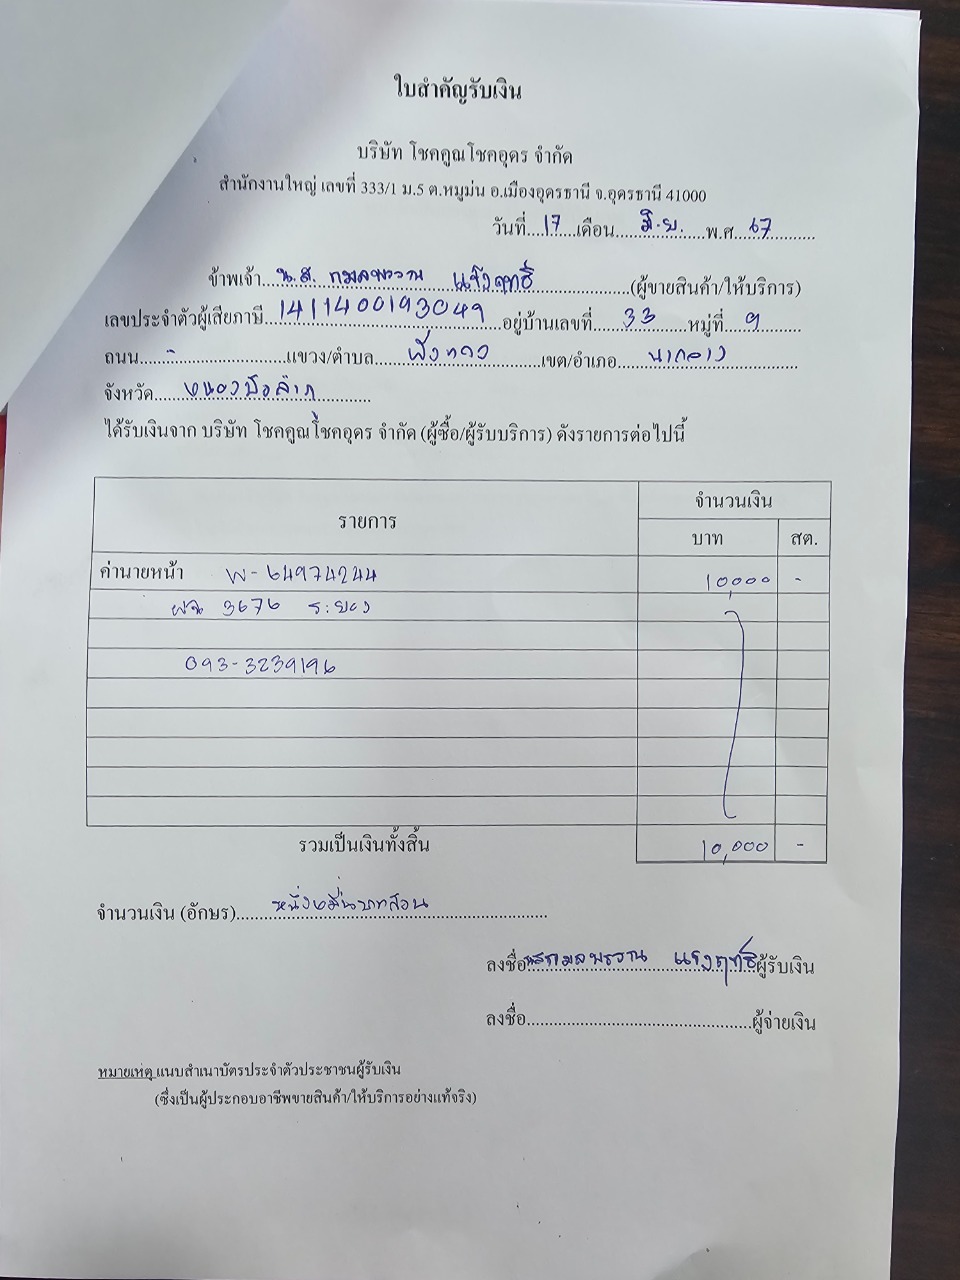 ใบสำคัญรับเงิน
บริษัท โชคคูณโชคอุดร จำกัด
สำนักงานใหญ่ เลขที่ 333/1 ม.5 ต.หมูม่น อ.เมืองอุดรธานี จ.อุดรธานี 41000
วันที่....17....เดือน....มิ.ย.....พ.ศ...67............
ข้าพเจ้า...น.ส. กมลพรรณ แข็งฤทธิ์...(ผู้ขายสินค้า/ให้บริการ)
เลขประจำตัวผู้เสียภาษี...1411400193049...อยู่บ้านเลขที่.....33.....หมู่ที่...9......
ถนน.....-.....แขวง/ตำบล.....ฝั่งแดง.....เขต/อำเภอ.....นากลาง.....
จังหวัด.....หนองบัวลำภู.....
ได้รับเงินจาก บริษัท โชคคูณโชคอุดร จำกัด (ผู้ซื้อ/ผู้รับบริการ) ดังรายการต่อไปนี้
รายการ จำนวนเงิน
บาท สต.
ค่านายหน้า W-64974244 10,000 -
3676 ระยอง
093-3239196
รวมเป็นเงินทั้งสิ้น 10,000 -
จำนวนเงิน (อักษร).....หนึ่งหมื่นบาทถ้วน.....
ลงชื่อ...นสกมลพรรณ แข็งฤทธิ์...ผู้รับเงิน
ลงชื่อ..................................................ผู้จ่ายเงิน
หมายเหตุ แนบสำเนาบัตรประจำตัวประชาชนผู้รับเงิน
(ซึ่งเป็นผู้ประกอบอาชีพขายสินค้า/ให้บริการอย่างแท้จริง)